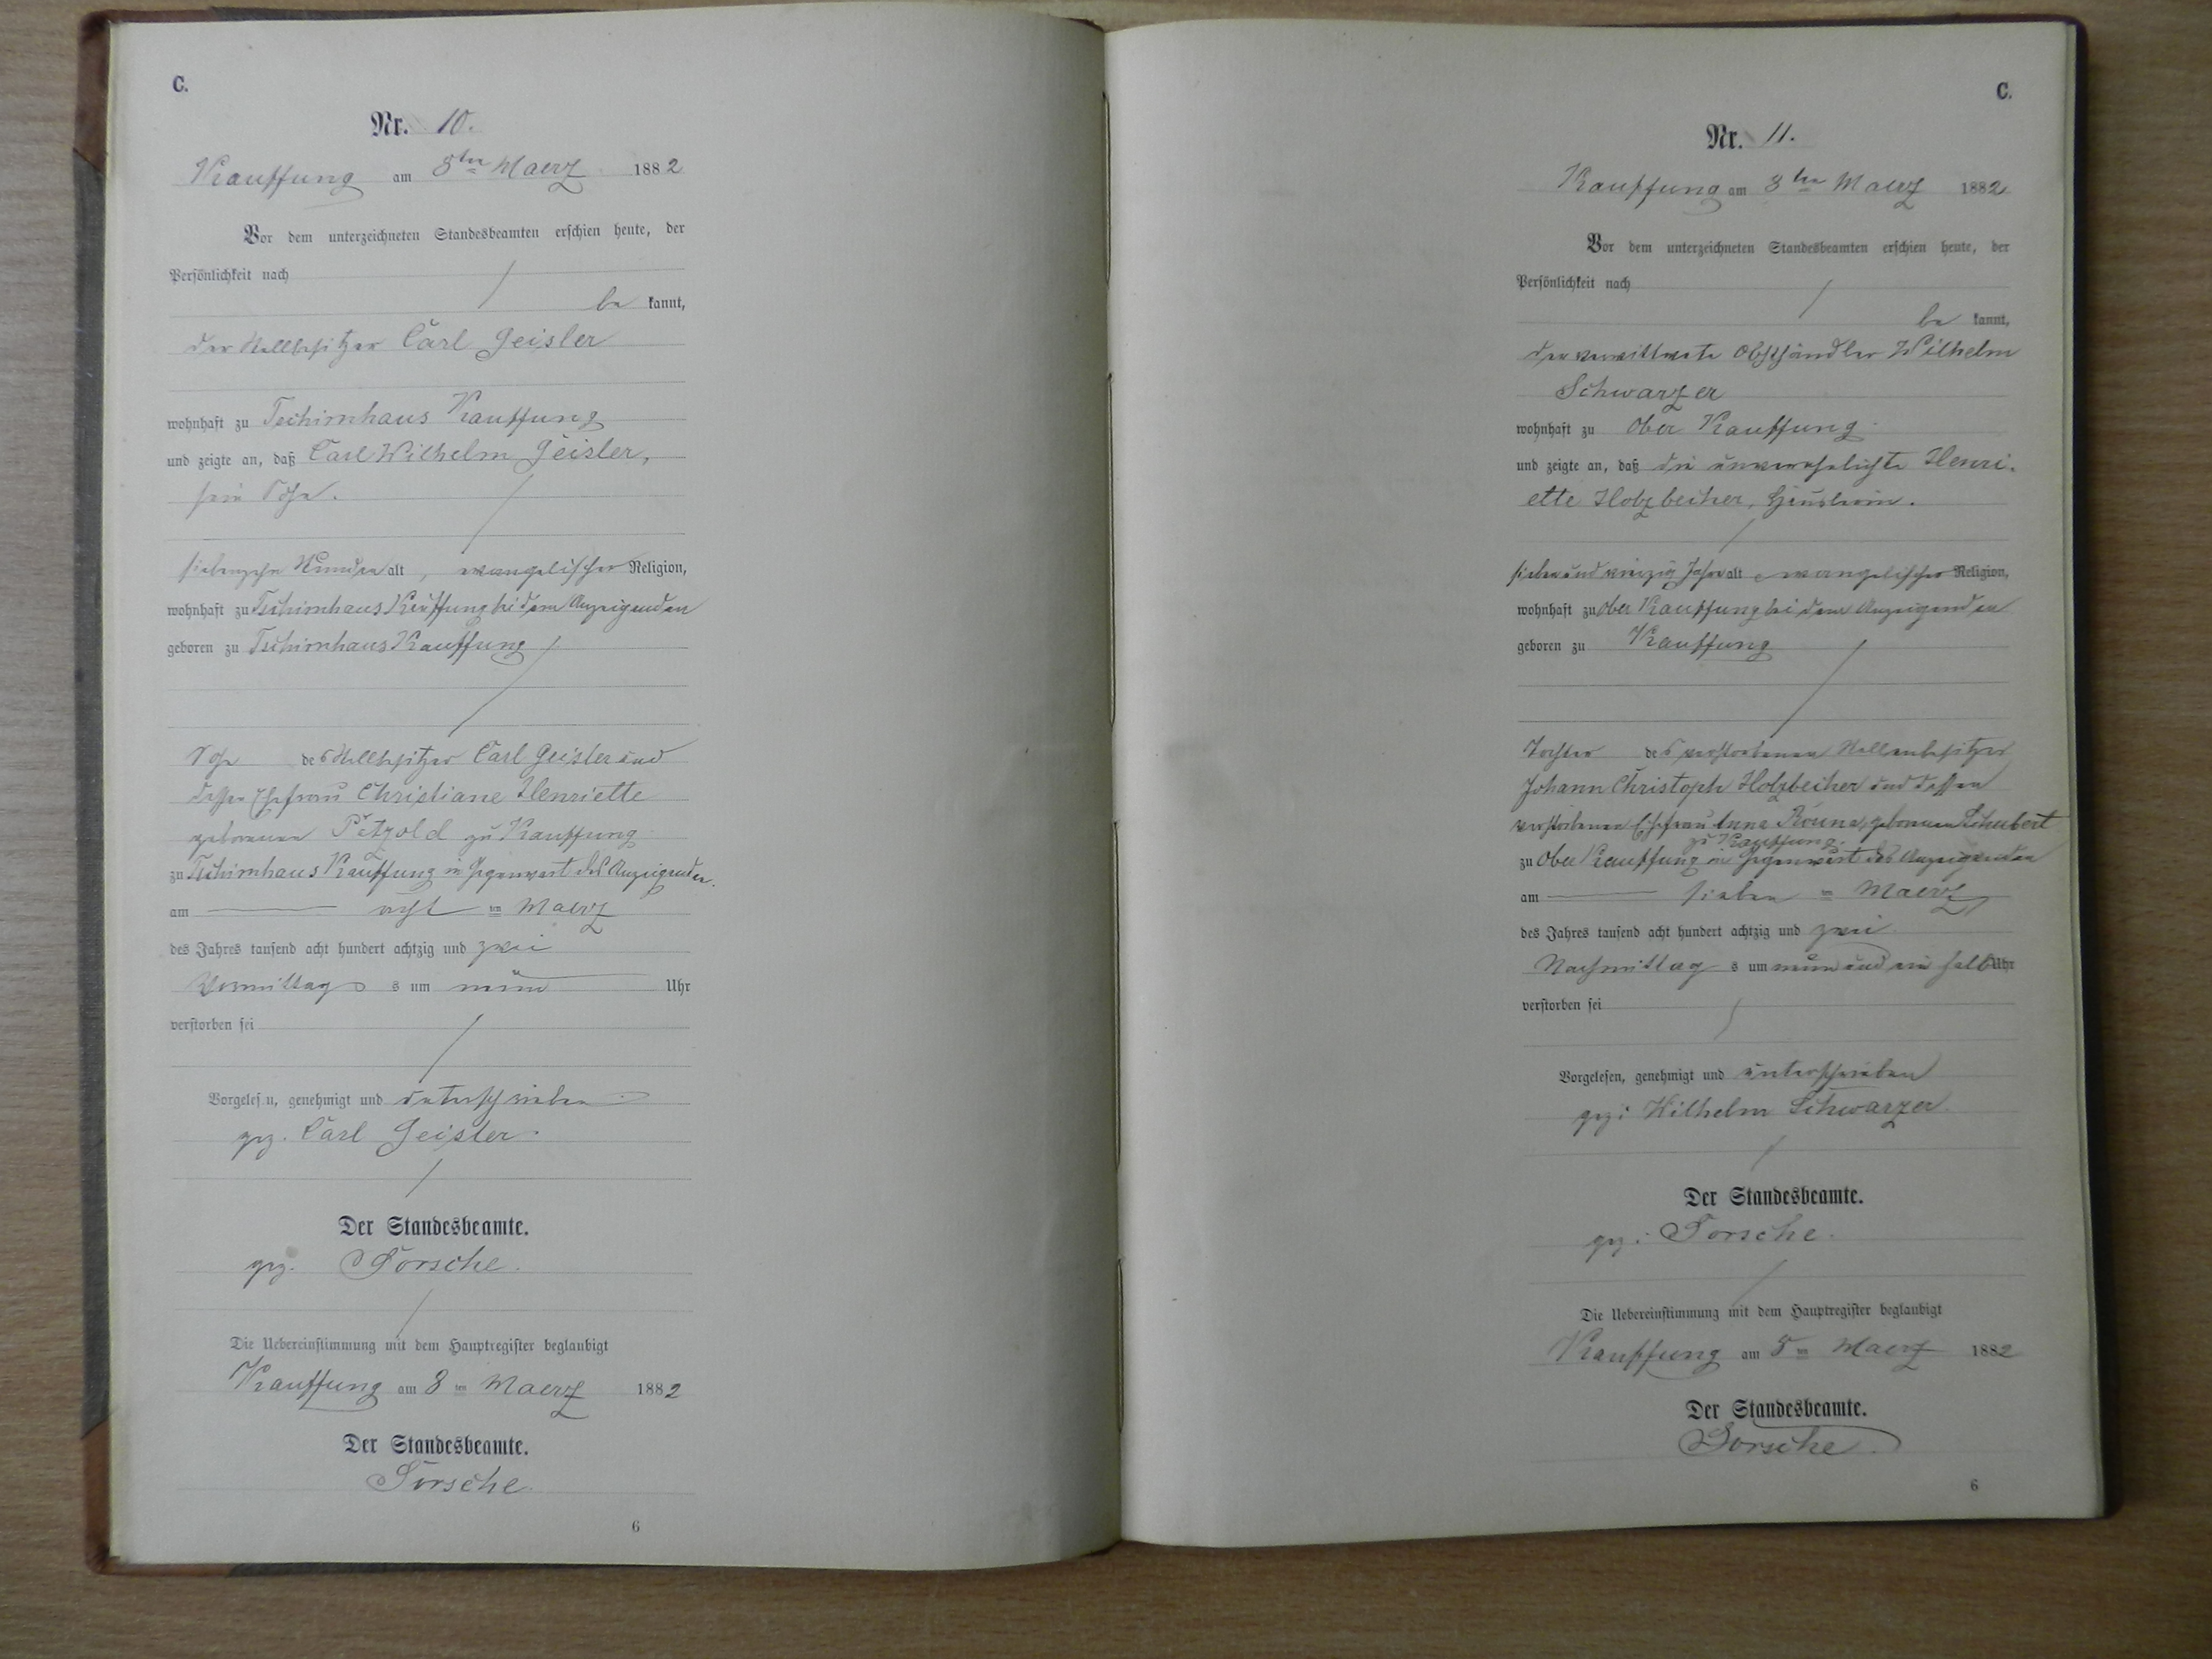 C.
Nr. 10.
Kauffung am 8ten Maerz 1882
Vor dem unterzeichneten Standesbeamten erschien heute, der
Persönlichkeit nach
be kannt,
der Stellbesitzer Carl Geisler
wohnhaft zu Tschirnhaus Kauffung
und zeigte an, daß Carl Wilhelm Geisler,
sein Sohn.
siebenzehn Stunden alt, evangelischer Religion,
wohnhaft zu Tschirnhaus Kauffung bei dem Anzeigenden
geboren zu Tschirnhaus Kauffung
Sohn des Stellbesitzer Carl Geisler und
dessen Ehefrau Christiane Henriette
geborenen Pätzold zu Kauffung
zu Tschirnhaus Kauffung in Gegenwart des Anzeigenden.
am acht ten Maerz
des Jahres tausend acht hundert achtzig und zwei
Vormittag s um neun Uhr
verstorben sei
Vorgelesen, genehmigt und unterschrieben
gez. Carl Geisler.
Der Standesbeamte.
gez. Torsche.
Die Uebereinstimmung mit dem Hauptregister beglaubigt
Kauffung am 8 ten Maerz 1882
Der Standesbeamte.
Torsche.
6
C.
Nr. 11.
Kauffung am 8ten Maerz 1882
Vor dem unterzeichneten Standesbeamten erschien heute, der
Persönlichkeit nach
be kannt,
der verwittwete Obsthändler Wilhelm
Schwarzer
wohnhaft zu Ober Kauffung
und zeigte an, daß die unverehelichte Henri-
ette Holzbecher,
sieben und vierzig Jahre alt evangelischer Religion,
wohnhaft zu Ober Kauffung bei dem Anzeigenden
geboren zu Kauffung
Tochter des verstorbenen Stellenbesitzer
Johann Christoph Holzbecher und dessen
verstorbenen Ehefrau Anna Rosina, geborenen Schubert
zu Kauffung.
zu Ober Kauffung in Gegenwart des Anzeigenden
am sieben ten Maerz
des Jahres tausend acht hundert achtzig und zwei
Nachmittag s um neun und ein halb Uhr
verstorben sei
Vorgelesen, genehmigt und unterschrieben
gez: Wilhelm Schwarzer.
Der Standesbeamte.
gez: Torsche.
Die Uebereinstimmung mit dem Hauptregister beglaubigt
Kauffung am 8 ten Maerz 1882
Der Standesbeamte.
Torsche.
6